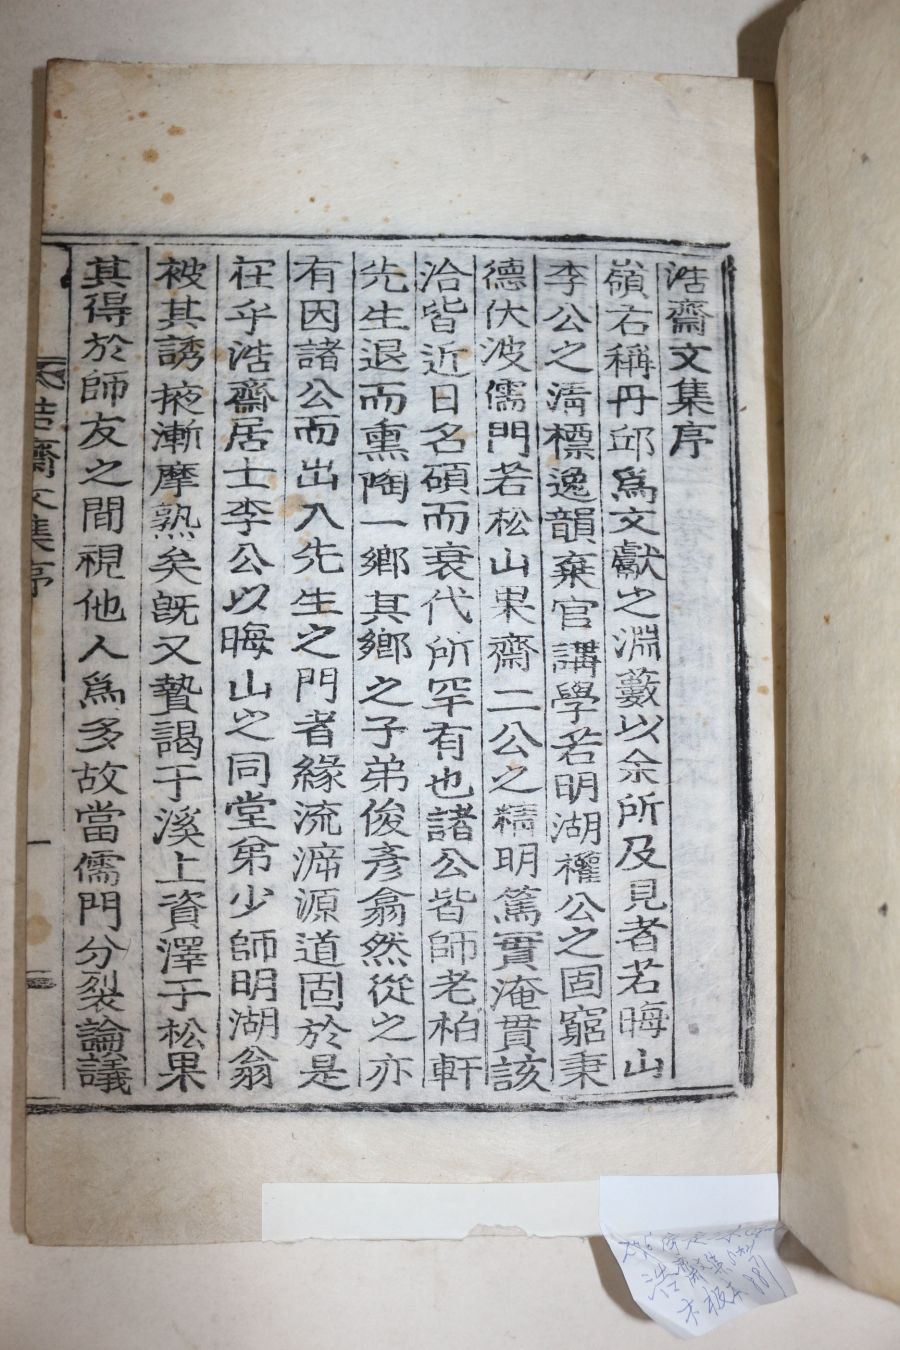 浩齋文集序
嶺右稱丹邱爲文獻之淵藪以余所及見者若晦山
李公之淸標逸韻棄官講學若明湖權公之固窮秉
德伏波儒門若松山果齋二公之精明篤實淹貫該
洽皆近日名碩而衰代所罕有也諸公皆師老柏軒
先生退而熏陶一鄉其鄉之子弟俊彥翕然從之亦
有因諸公而出入先生之門者緣流溯源道固於是
在乎浩齋居士李公以晦山之同堂弟少師明湖翁
被其誘掖漸摩熟矣旣又贄謁于溪上資澤于松果
其得於師友之間視他人爲多故當儒門分裂論議
浩齋文集序
一
浩齋文集
木板本